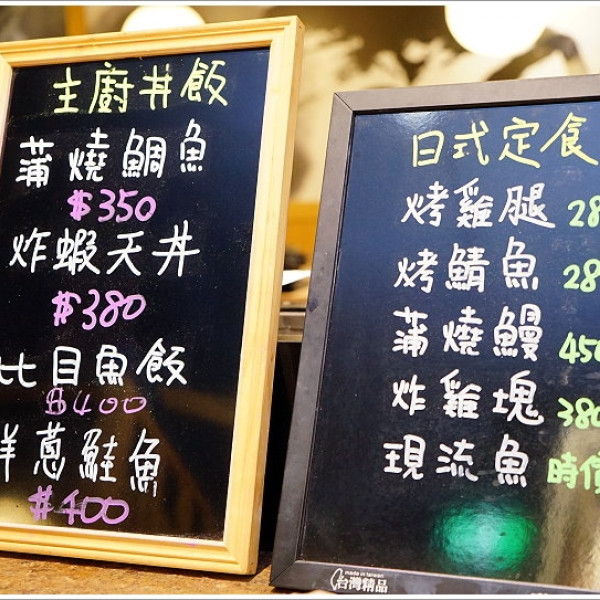 主廚丼飯
蒲燒鯛魚
$350
炸蝦天丼
$380
比目魚飯
$400
洋蔥鮭魚
$400
日式定食
烤雞腿 28
烤鯖魚 28
蒲燒鰻 450
炸雞塊 380
現流魚 時價
made in taiwan
台灣精品